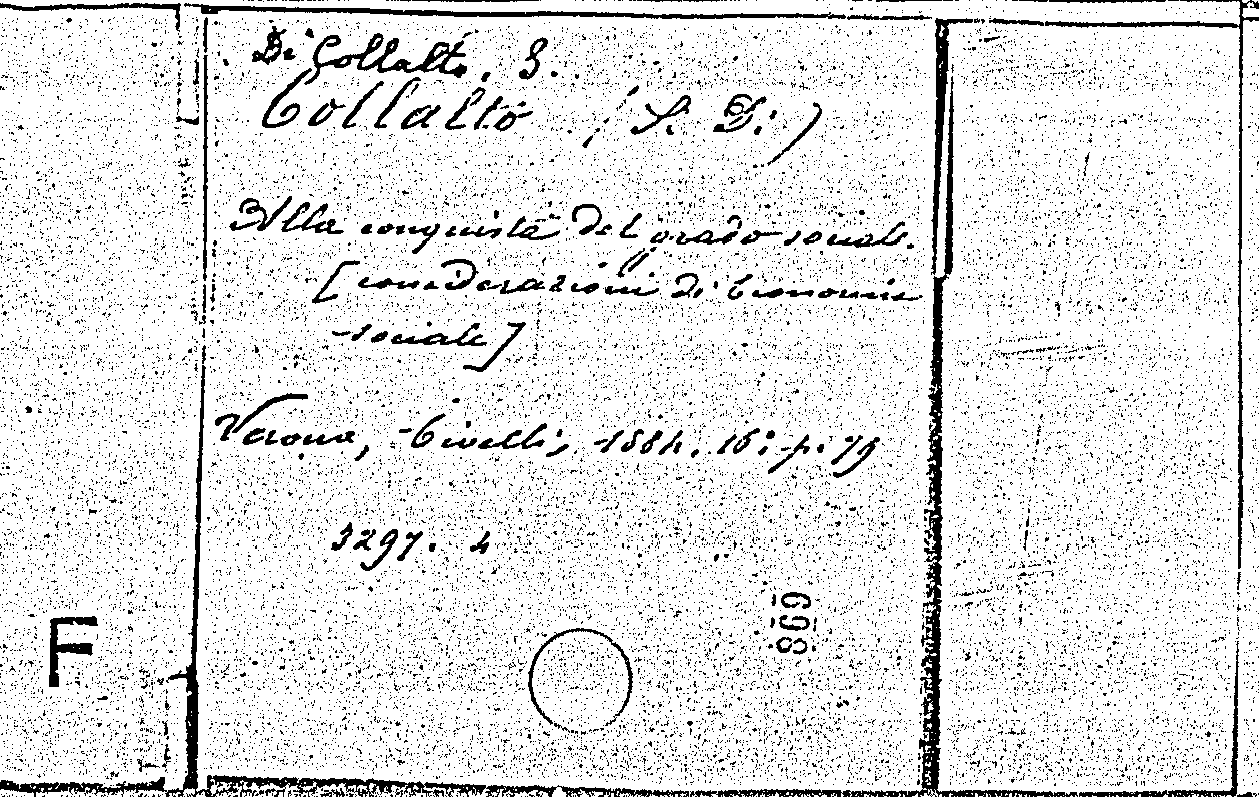 Di Collalto, S.
Collalto (S. Di)
Alla conquista del grado sociale.
[considerazioni di Economia
sociale]
Verona, Civelli, 1884. 16° p. 79
3297. 4
869
F